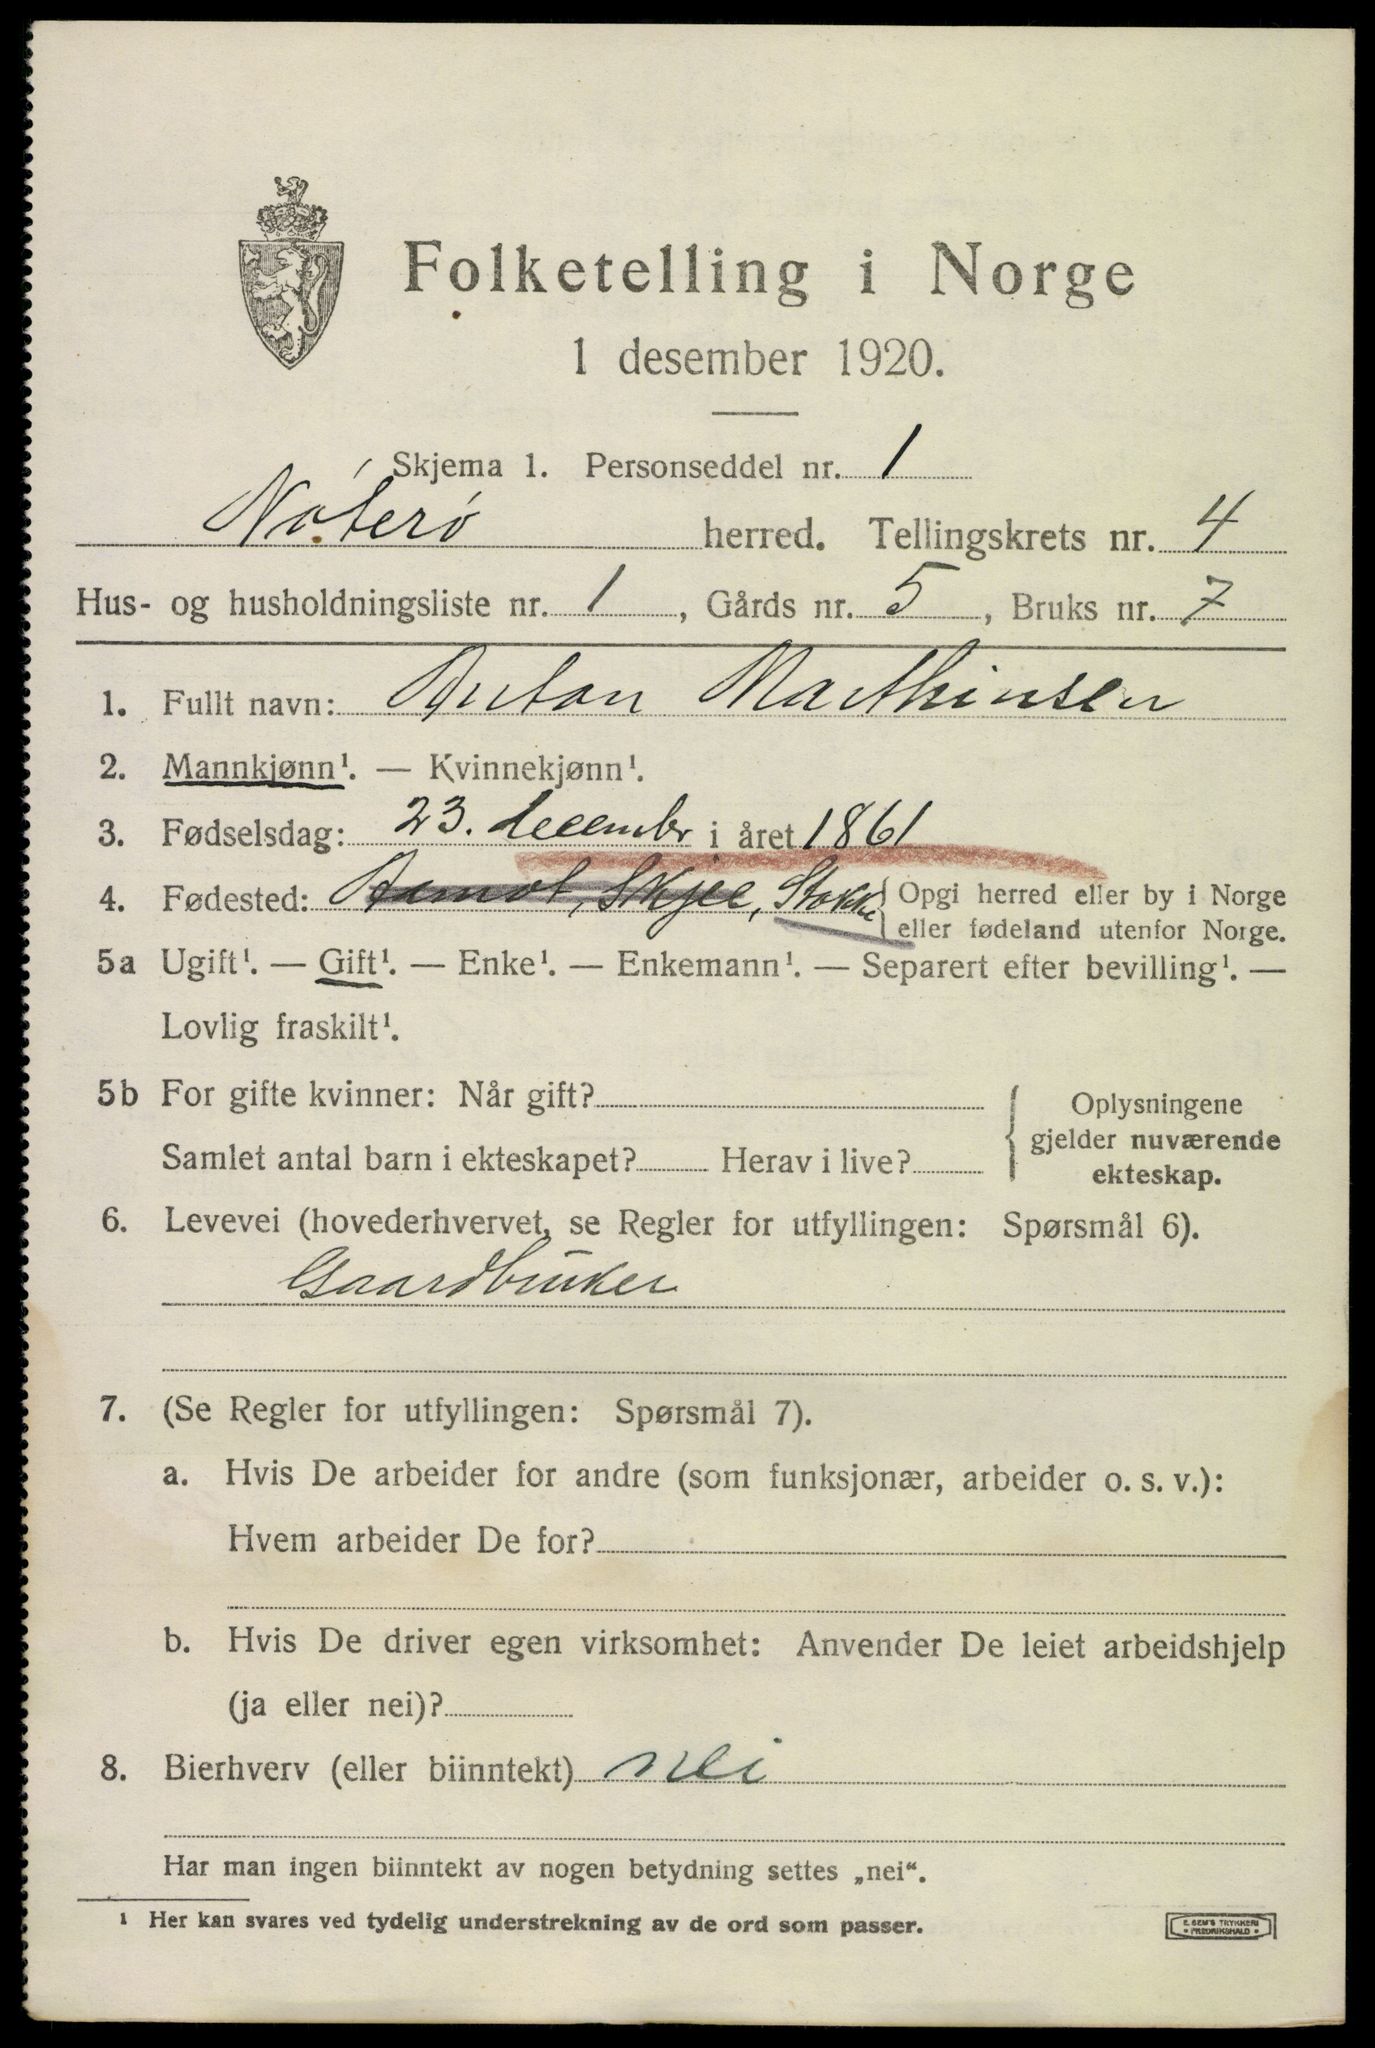 Folketelling i Norge
1 desember 1920.
Skjema 1. Personseddel nr. 1
Nøterø herred. Tellingskrets nr. 4
Hus- og husholdningsliste nr. 1, Gårds nr. 5, Bruks nr. 7
1. Fullt navn: Anton Mathinsen
2. Mannkjønn¹. — Kvinnekjønn¹.
3. Fødselsdag: 23. december i året 1861
4. Fødested: Skjee, Stokke { Opgi herred eller by i Norge
eller fødeland utenfor Norge.
5a Ugift¹. — Gift¹. — Enke¹. — Enkemann¹. — Separert efter bevilling¹. —
Lovlig fraskilt¹.
5b For gifte kvinner: Når gift?
Samlet antal barn i ekteskapet? Herav i live?
{ Oplysningene
gjelder nuværende
ekteskap.
6. Levevei (hovederhvervet, se Regler for utfyllingen: Spørsmål 6).
Gaardbruker
7. (Se Regler for utfyllingen: Spørsmål 7).
a. Hvis De arbeider for andre (som funksjonær, arbeider o. s. v.):
Hvem arbeider De for?
b. Hvis De driver egen virksomhet: Anvender De leiet arbeidshjelp
(ja eller nei)?
8. Bierhverv (eller biinntekt) nei
Har man ingen biinntekt av nogen betydning settes „nei“.
¹ Her kan svares ved tydelig understrekning av de ord som passer.
E. SEM'S TRYKKERI
• FREDRIKSHALD •